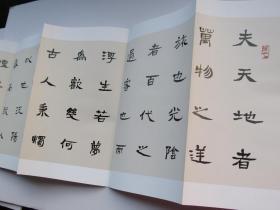 夫天地者
萬物之逆
旅也光陰
者百代之
過客也而
浮生若夢
為歡幾何
古人秉燭